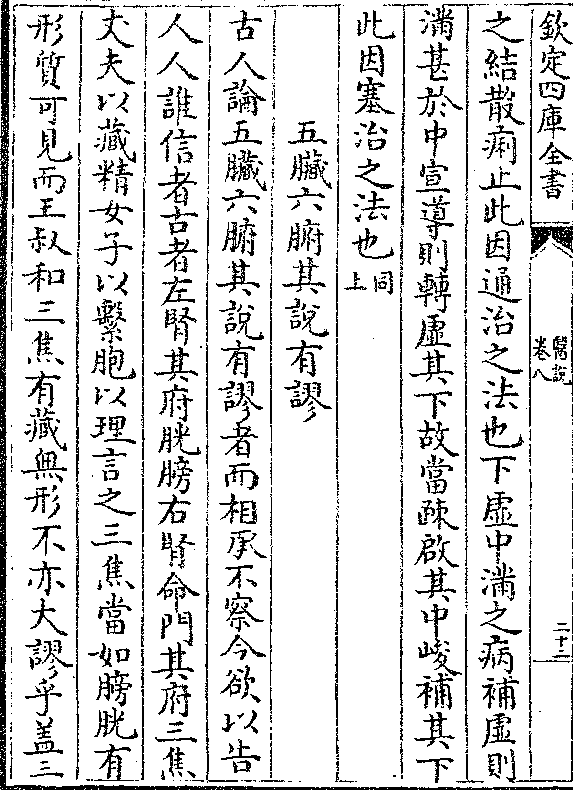 欽定四庫全書
醫說
卷八
二十二
之結散痢止此因通治之法也下虛中滿之病補虛則
滿甚於中宣導則轉虛其下故當疎啟其中峻補其下
此因塞治之法也同上
五臟六腑其說有謬
古人論五臟六腑其說有謬者而相承不察今欲以告
人人誰信者古者左腎其府膀胱右腎命門其府三焦
丈夫以藏精女子以繫胞以理言之三焦當如膀胱有
形質可見而王叔和三焦有藏無形不亦大謬乎蓋三